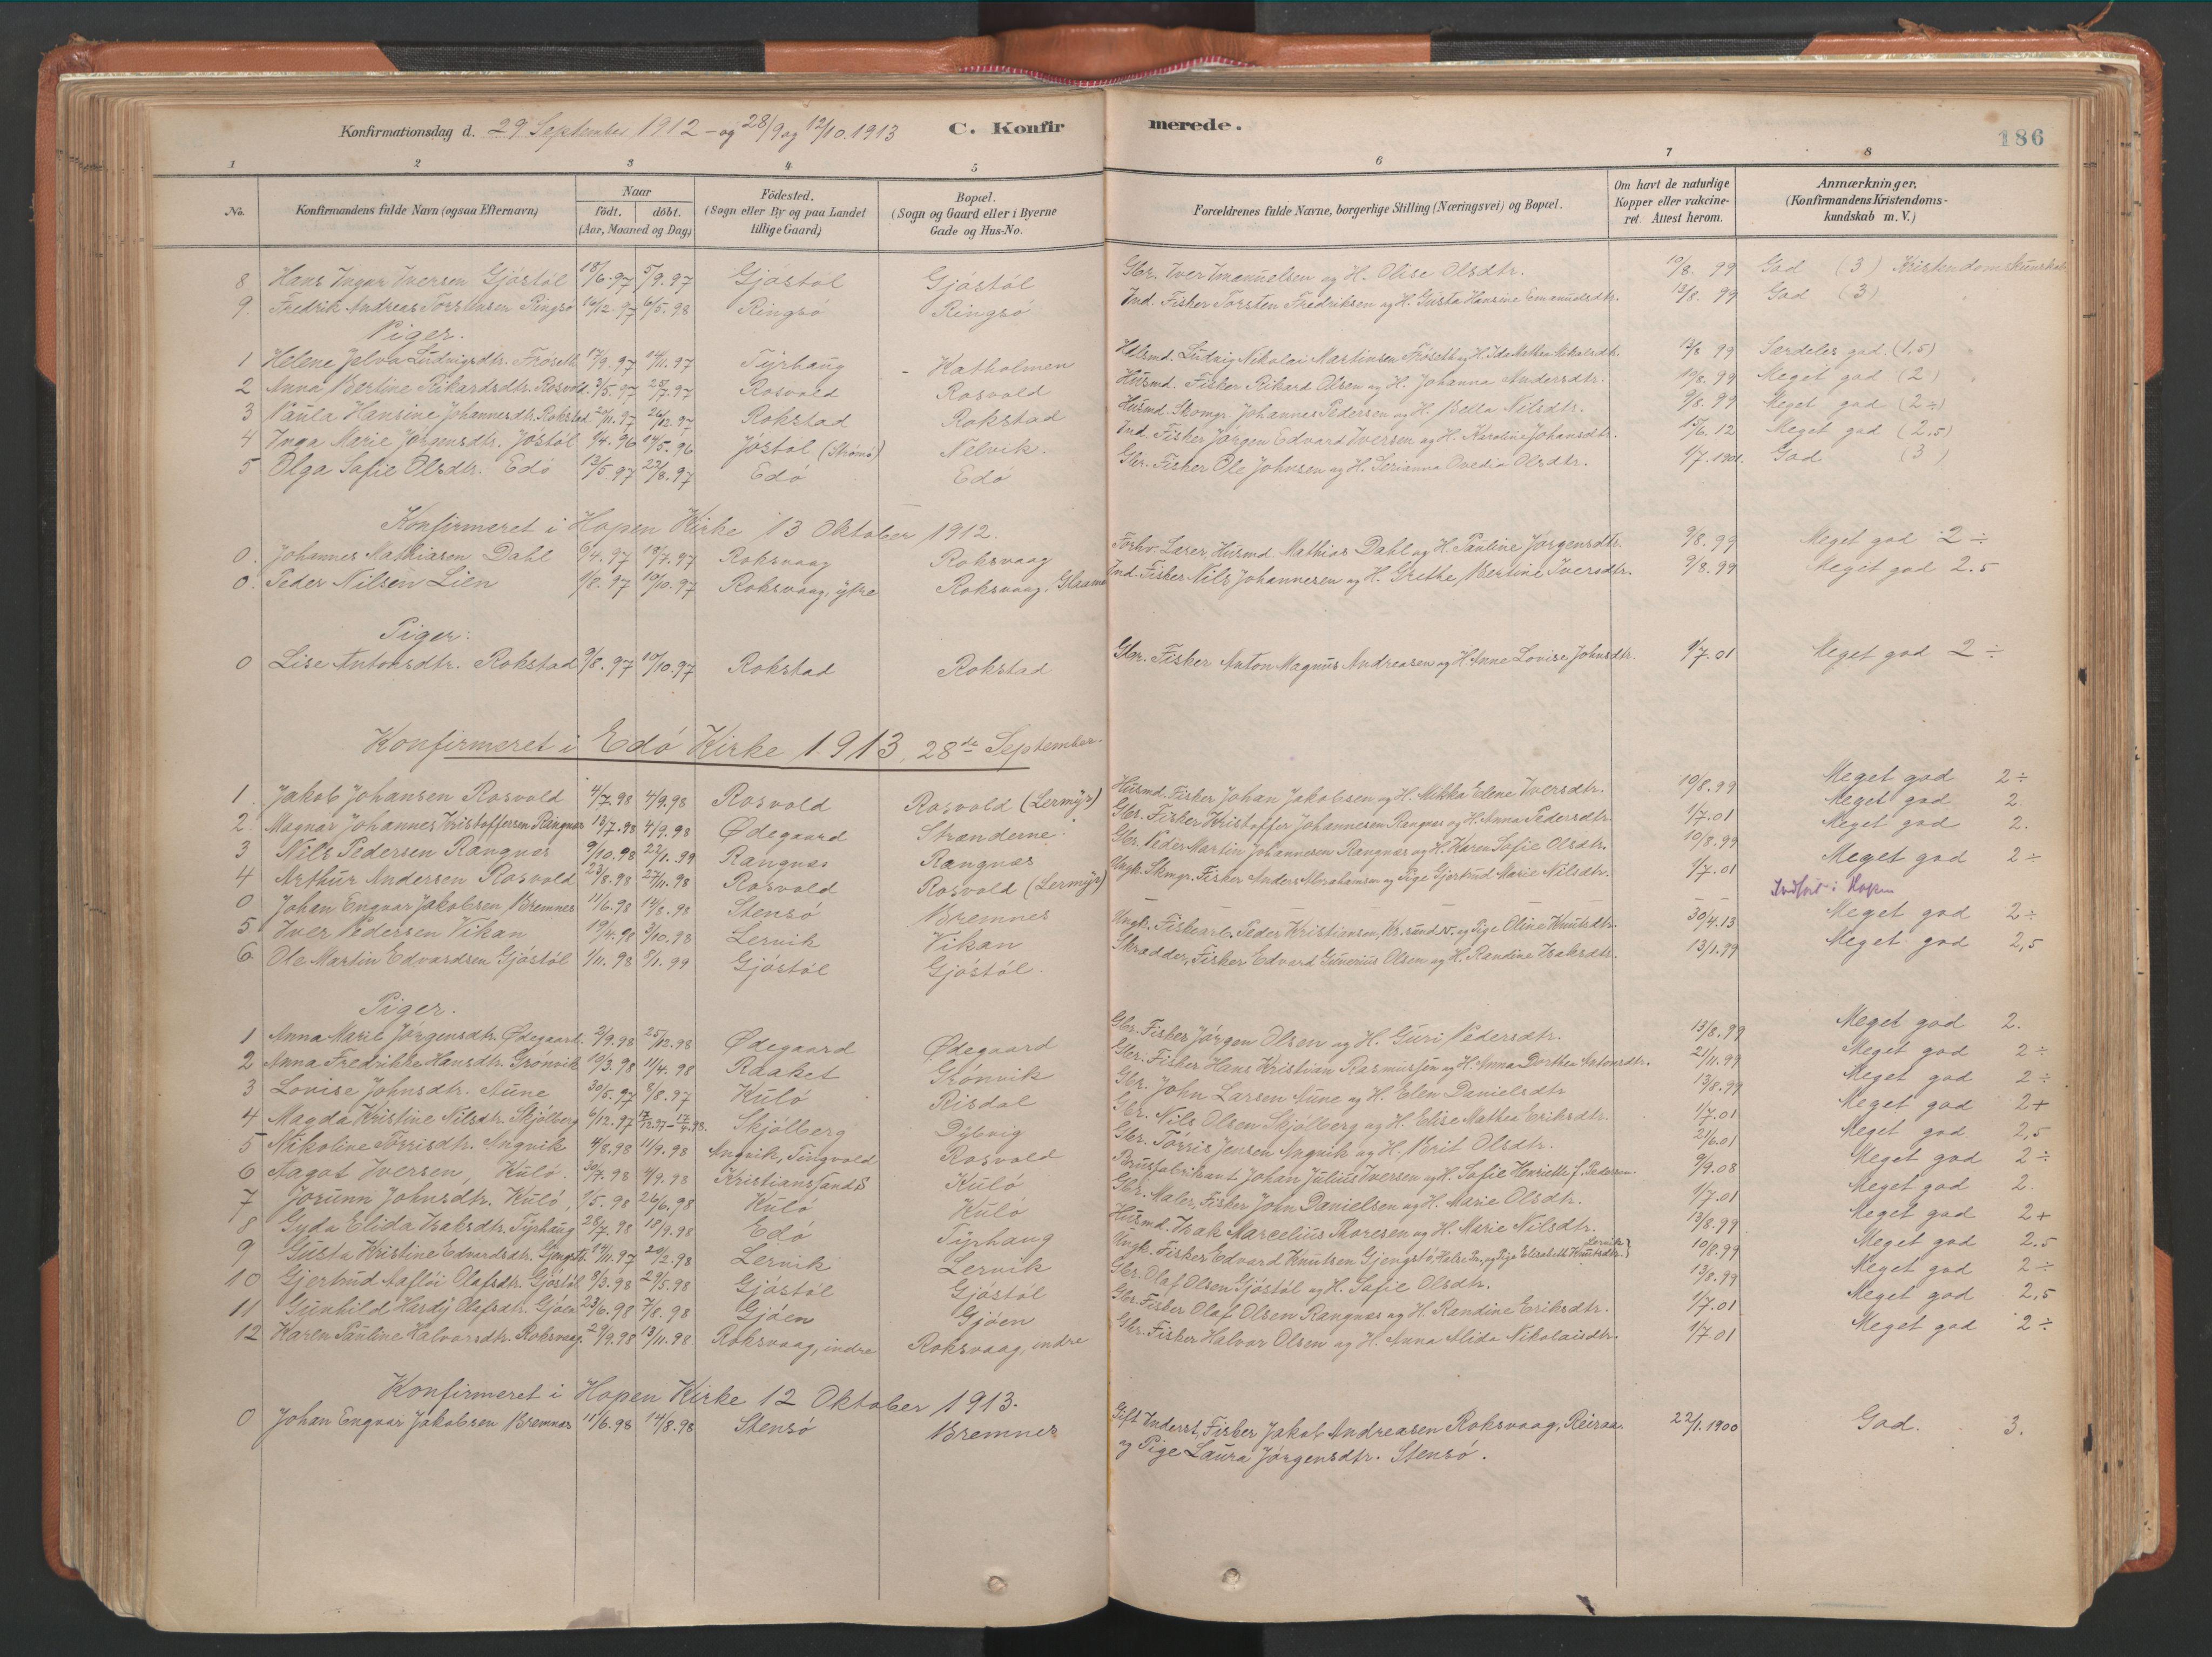 Konfirmationsdag d. 29 September 1912 - og 28/9 og 12/10.1913 C. Konfirmerede. 186
1 2 3 4 5 6 7 8
No. Konfirmandens fulde Navn (ogsaa Efternavn) Naar födt. döbt. (Aar, Maaned og Dag) Födested. (Sogn eller By og paa Landet tillige Gaard) Bopæl. (Sogn og Gaard eller i Byerne Gade og Hus-No. Forældrenes fulde Navne, borgerlige Stilling (Næringsvei) og Bopæl. Om havt de naturlige Kopper eller vakcineret. Attest herom. Anmærkninger. (Konfirmandens Kristendomskundskab m. V.)
8 Hans Ingvar Iversen Gjöstöl 18/6.97 5/9.97 Gjöstöl Gjöstöl Gbr. Iver Imanuelsen og H. Olise Olsdtr. 10/8. 99 God (3) Kristendomskunskab
9. Fredrik Andreas Torstensen Ringsö 16/12.97 6/5.98 Ringsö Ringsö Ind. Fisker Torsten Fredriksen og H. Gusta Hansine Emanuelsdtr. 13/8. 99 God (3)
Piger.
1 Helene Jelva Ludvigsdtr. Fröseth 17/9.97 14/11.97 Tyrhaug - Katholmen Husmd. Ludvig Nikolai Martinsen Fröseth og H. Ida Mathea Nikolsdtr. 13/8 99 Særdeles god. (1,5)
2 Anna Bertine Rikardsdtr. Rosvold 3/5.97 25/7.97 Rosvold Rosvold Husmd. Fisker Rikard Olsen og H. Johanna Andersdtr. 10/8.99 Meget god (2)
3 Paula Hansine Johannesdtr. Rokstad 2/11.97 26/12.97 Rokstad Rokstad Husmd. Skomgr. Johannes Pedersen og H. Bella Nilsdtr. 9/8.99 Meget god (2÷)
4 Inga Marie Jörgensdtr. Jöstöl 9/4.96 14/5.96 Jöstöl (Strömö) Nelvik. Ind. Fisker Jörgen Edvard Iversen og H. Karoline Johansdtr. 15/6.12 Meget god (2,5)
5 Olga Sofie Olsdtr. Edö 13/5.97 22/8.97 Edö Edö Gbr. Fisker Ole Johnsen og H. Serianna Ovedia Olsdtr. 1/7.1901. God (3)
Konfirmeret i Hopen Kirke 13 Oktober 1912.
0. Johannes Mathiasen Dahl 9/4.97 18/7.97 Roksvaag Roksvaag Forhv. Lærer, Husmd. Mathias Dahl og H. Pauline Jörgensdtr. 9/8.99 Meget god 2÷
0. Peder Nilsen Lien 1/8.97 10/10.97 Roksvaag, ytre Roksvaag, Ind. Fisker Nils Johannesen og H. Grethe Bertine Iversdtr. 9/8.99 Meget god 2.5
Piger:
0 Lise Antonsdtr. Rokstad 9/8.97 10/10.97 Rokstad Rokstad Gbr. Fisker Anton Magnus Andreasen og H. Anne Lovise Johnsdtr. 1/7.01 Meget god 2÷
Konfirmeret i Edö Kirke 1913, 28de September.
1. Jakob Johansen Rosvold 4/7.98 4/9.98 Rosvold Rosvold (Lermyr) Husmd. Fisker Johan Jakobsen og H. Mikka Elene Iversdtr. 10/8.99 Meget god 2÷
2. Magnar Johannes Kristoffersen Ringnes 13/7.98 4/9.98 Ødegaard Stranderne. Gbr. Fisker Kristoffer Johannesen Rangnæs og H. Anna Pedersdtr. 1/7.01 Meget god 2.
3 Nils Pedersen Rangnes 9/10.98 22/1.99 Rangnæs Rangnæs Gbr. Peder Martin Johannesen Rangnæs og H. Karen Sofie Olsdtr. 10/8.99 Meget god 2.
4 Arthur Andersen Rosvold 23/8.98 27/11.98 Rosvold Rosvold (Lermyr) Ungk. Skmgr. Fisker Anders Abrahamsen og Pige Gjertrud Marie Nilsdtr. 1/7.01 Meget god 2÷
0 Johan Engvar Jakobsen Bremnes 11/6.98 14/8.98 Stensö Bremnes Indført i Hopen
5 Iver Pedersen Vikan 19/4.98 3/10.98 Lervik Vikan Ungk. Fisker Peder Kristiansen, Kr.sund N. og Pige Oline Knutsdtr. 30/4.13 Meget god 2÷
6 Ole Martin Edvardsen Gjöstöl 1/11.98 8/1.99 Gjöstöl Gjöstöl. Skrædder, Fisker Edvard Gunerius Olsen og H. Randine Isaksdtr. 13/1.99 Meget god 2,5
Piger.
1 Anna Marie Jörgensdtr. Ødegaard. 2/9.98 25/12.98 Ødegaard Ødegaard Gbr. Fisker Jörgen Olsen og H. Guri Pedersdtr. 13/8.99 Meget god 2.
2 Anna Fredrikke Hansdtr. Grönvik 10/3.98 11/4.98 Raaket Grönvik Gbr. Fisker Hans Kristian Rasmussen og H. Anna Dorthea Antonsdtr. 21/11.99 Meget god 2÷
3 Lovise Johnsdtr. Aune 30/5.97 8/8.97 Kulö Risdal Gbr. John Larsen Aune og H. Elen Danielsdtr 13/8.99 Meget god 2÷
4 Magda Kristine Nilsdtr. Skjölberg 6/12.97 17/12.97-17/4.98. Skjölberg Dybvig Gbr. Nils Olsen Skjölberg og H. Elise Mathea Eriksdtr. 1/7.01 Meget god 2+
5 Nikoline Torrisdtr. Angvik 4/8.98 11/9.98 Angvik, Tingvold Rosvold Gbr. Torris Jensen Angvik og H. Berit Olsdtr. 21/6.01 Meget god 2,5
6 Aagot Iversen, Kulö. 30/7.98 4/9.98 Kristianssand S Kulö Brusfabrikant Johan Julius Iversen og H. Sofie Henriette f. Pedersen. 9/9.08 Meget god 2÷
7 Jorunn Johnsdtr. Kulö, 1/5.98 26/6.98 Kulö Kulö Gbr. Maler, Fisker John Danielsen og H. Marie Olsdtr. 1/7.01 Meget god 2.
8 Gyda Elida Isaksdtr. Tyrhaug 28/7.98 18/9.98 Edö Tyrhaug Husmd. Isak Marcelius Thoresen og H. Marie Nilsdtr. 13/8.99 Meget god 2+
9 Gusta Kristine Edvardsdtr. Gjengstö. 14/11.97 20/2.98 Lervik Lervik Ungk. Fisker Edvard Knutsen Gjengstö, Halse Pr., og Pige Elisabeth Knutsdtr. Lervik 10/8.99 Meget god 2.5
10 Gjertrud Aaflöi Olafsdtr. Gjöstöl 8/3.98 29/5.98 Gjöstöl Gjöstöl Gbr. Olaf Olsen Gjöstöl og H. Sofie Olsdtr. 13/8.99 Meget god 2÷
11 Gunhild Hardy Olafsdtr. Gjöen 23/6.98 7/8.98 Gjöen Gjöen Gbr. Fisker Olaf Olsen Rangnæs og H. Randine Eriksdtr. 1/7.01 Meget god 2,5
12 Karen Pauline Halvorsdtr. Roksvag. 29/9.98 13/11.98. Roksvaag, indre Roksvaag, indre Gbr. Fisker Halvor Olsen og H. Anna Alida Nikolaisdtr. 1/7.01 Meget god 2÷
Konfirmeret i Hopen Kirke 12 Oktober 1913.
0 Johan Engvar Jakobsen Bremnes 11/6.98 14/8.98 Stensö Bremnes Gift Inderst, Fisker Jakob Andreasen Roksvaag, Reiraa 22/1.1900 God. 3.
og Pige Laura Jörgensdtr. Stensö.